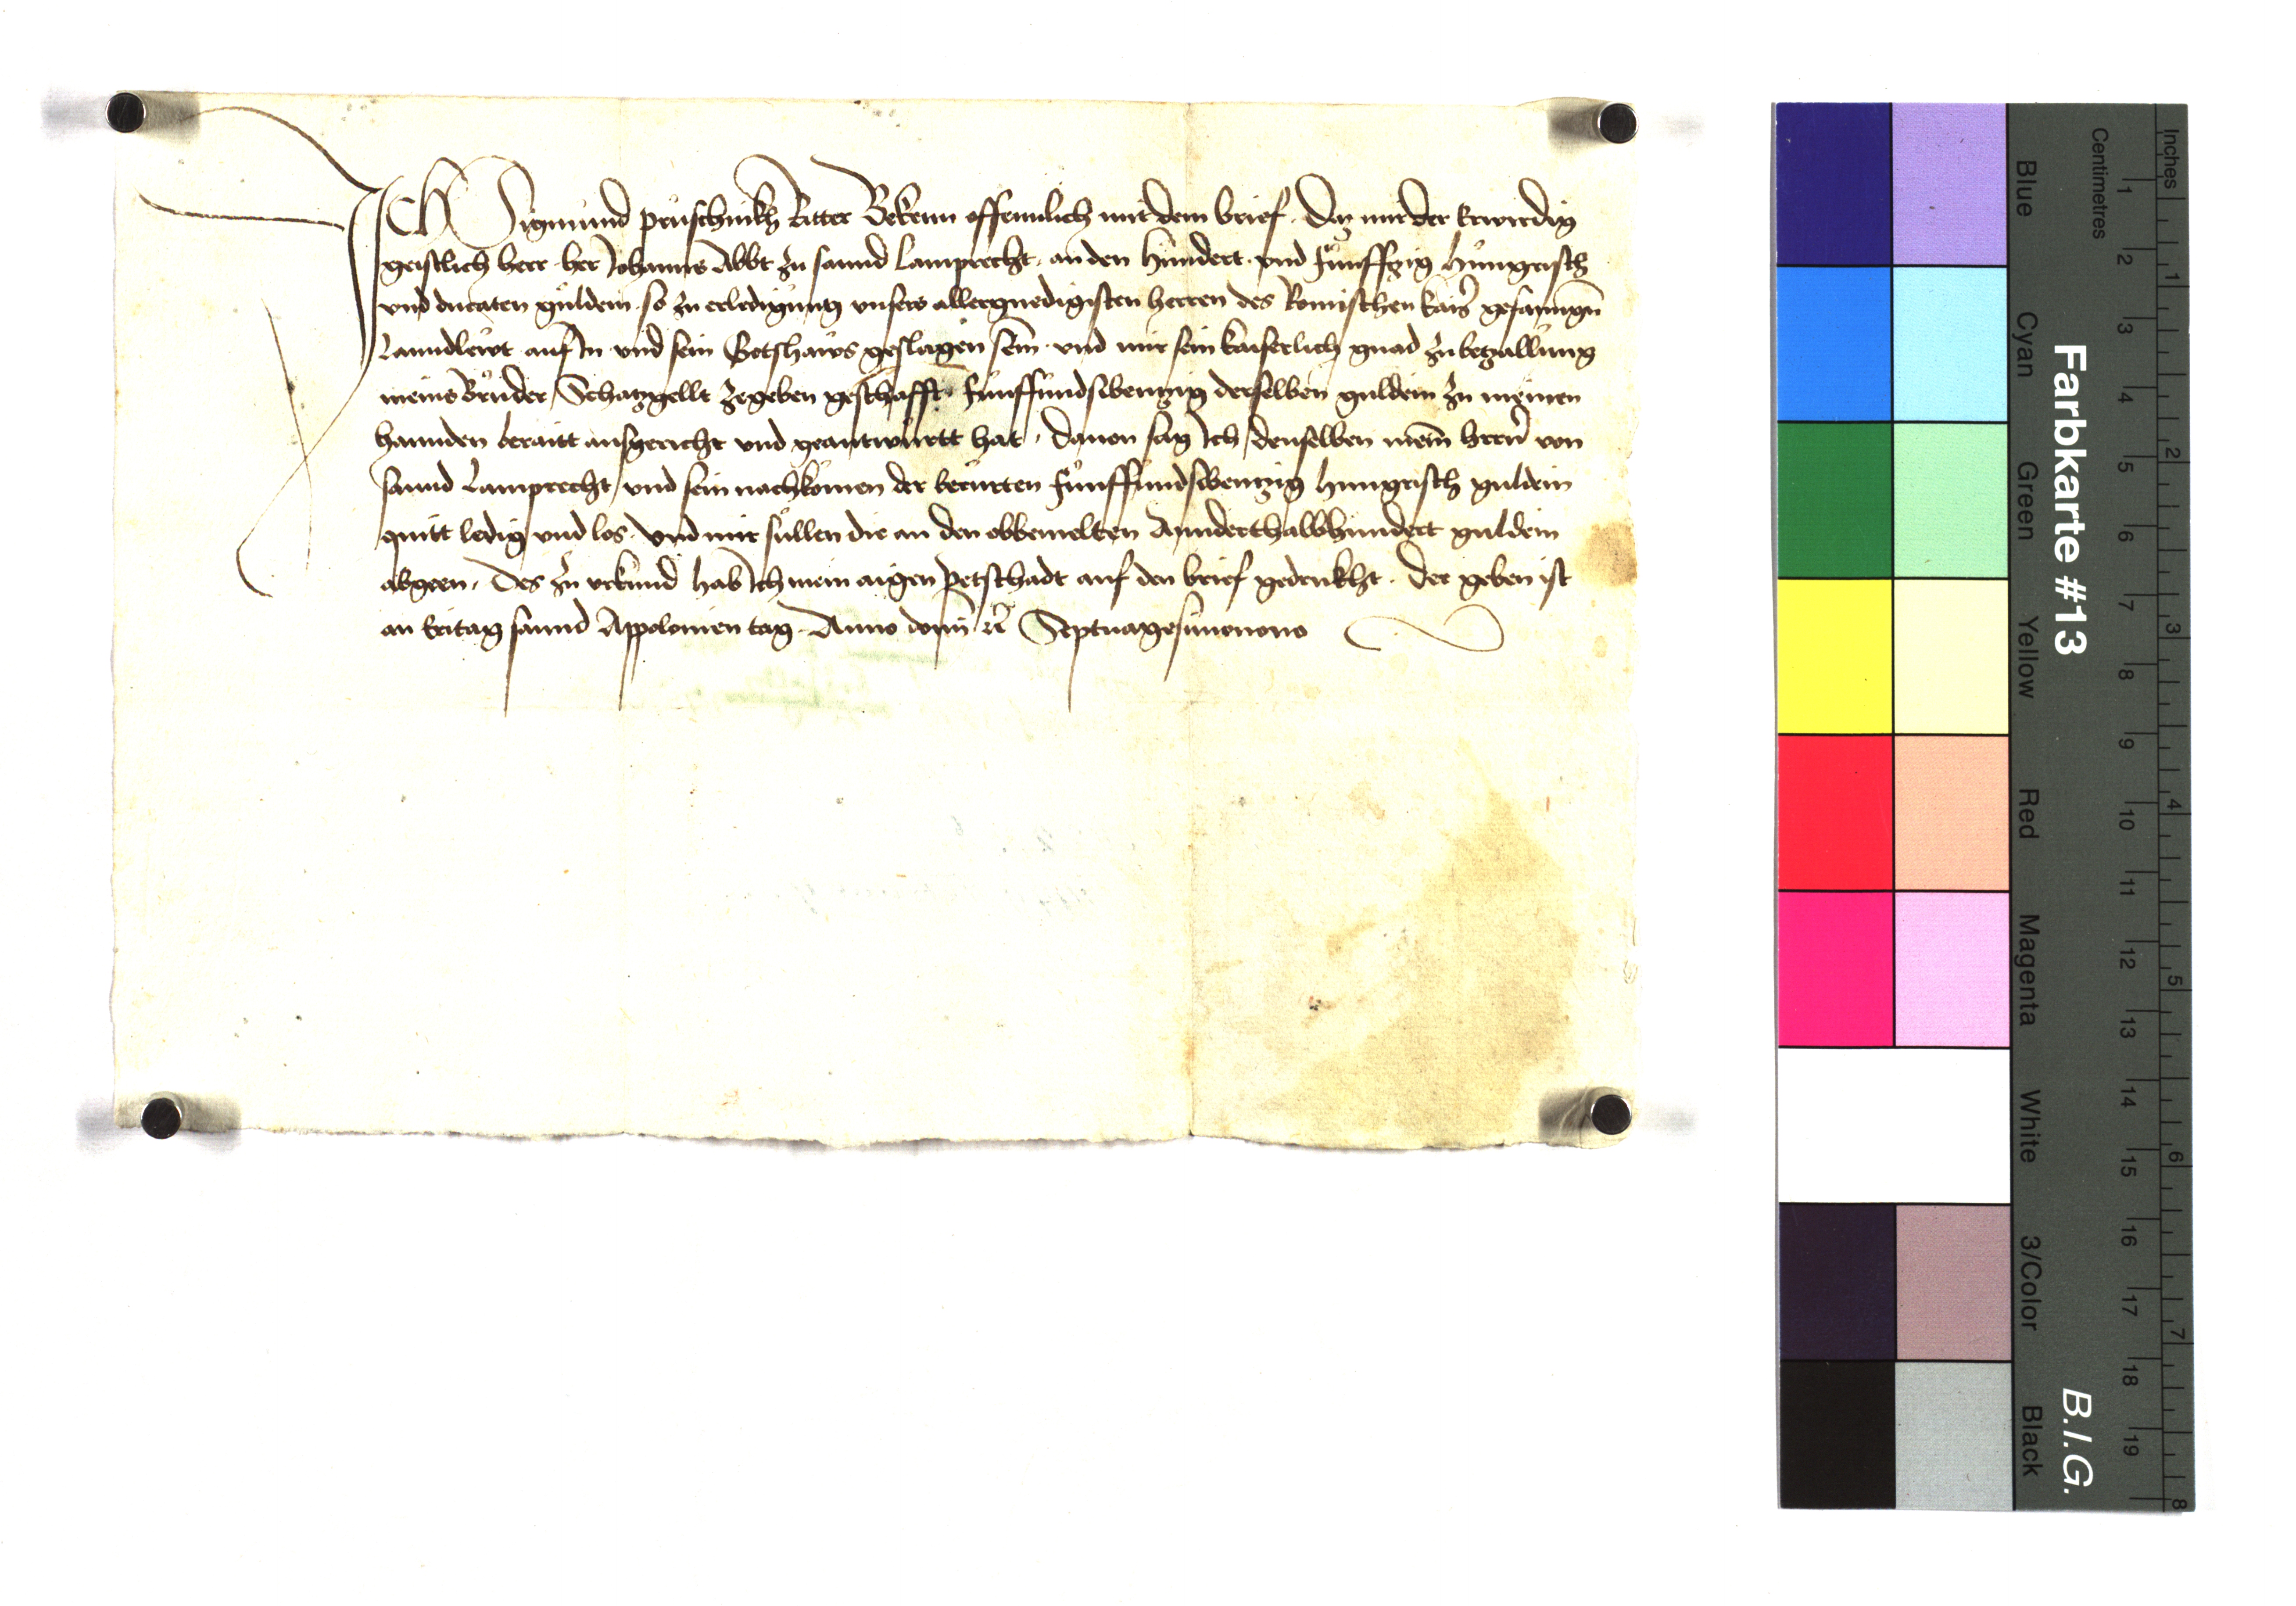 ICH Sigmund prüschinkh Ritter Bekenn offennlich mit dem brief. Daz mir der Erwirdig
geistlich herr her Johanns Abbt zu sannd Lamprecht. an den Hundert und fünffzig Hungrisch
und ducaten guldein. so zu erledigung unsers allergnedigisten herren des Romischen kais̃ gefanngñ
Lanndlewt auf In und sein Gotshaws geslagen sein. und mir sein kaiserlich gnad zu betzallung
meins Brüder Schatzgellt zegeben geschafft. fünffundswentzig derselben guldein zu meinen
hannden beraitt ausgericht und geantwurtt hat. Dauon sag Ich denselben mein herrñ von
sannd Lamprecht und sein nachkomen der berurten fünffundswentzig hungrisch guldein
quitt ledig und los. Und mir sullen die an den obbemelten Annderthalbhundert guldein
abgeen. Des zu urkund hab Ich mein aigen Petschadt auf den brief gedrukht. Der geben ist
an Eritag sannd Appolonien tag. Anno domĩ rc̃ Septuagesimonono
Farbkarte #13
B.I.G.
Inches
Centimetres
1 2 3 4 5 6 7 8 9 10 11 12 13 14 15 16 17 18 19
1 2 3 4 5 6 7 8
Blue
Cyan
Green
Yellow
Red
Magenta
White
3/Color
Black